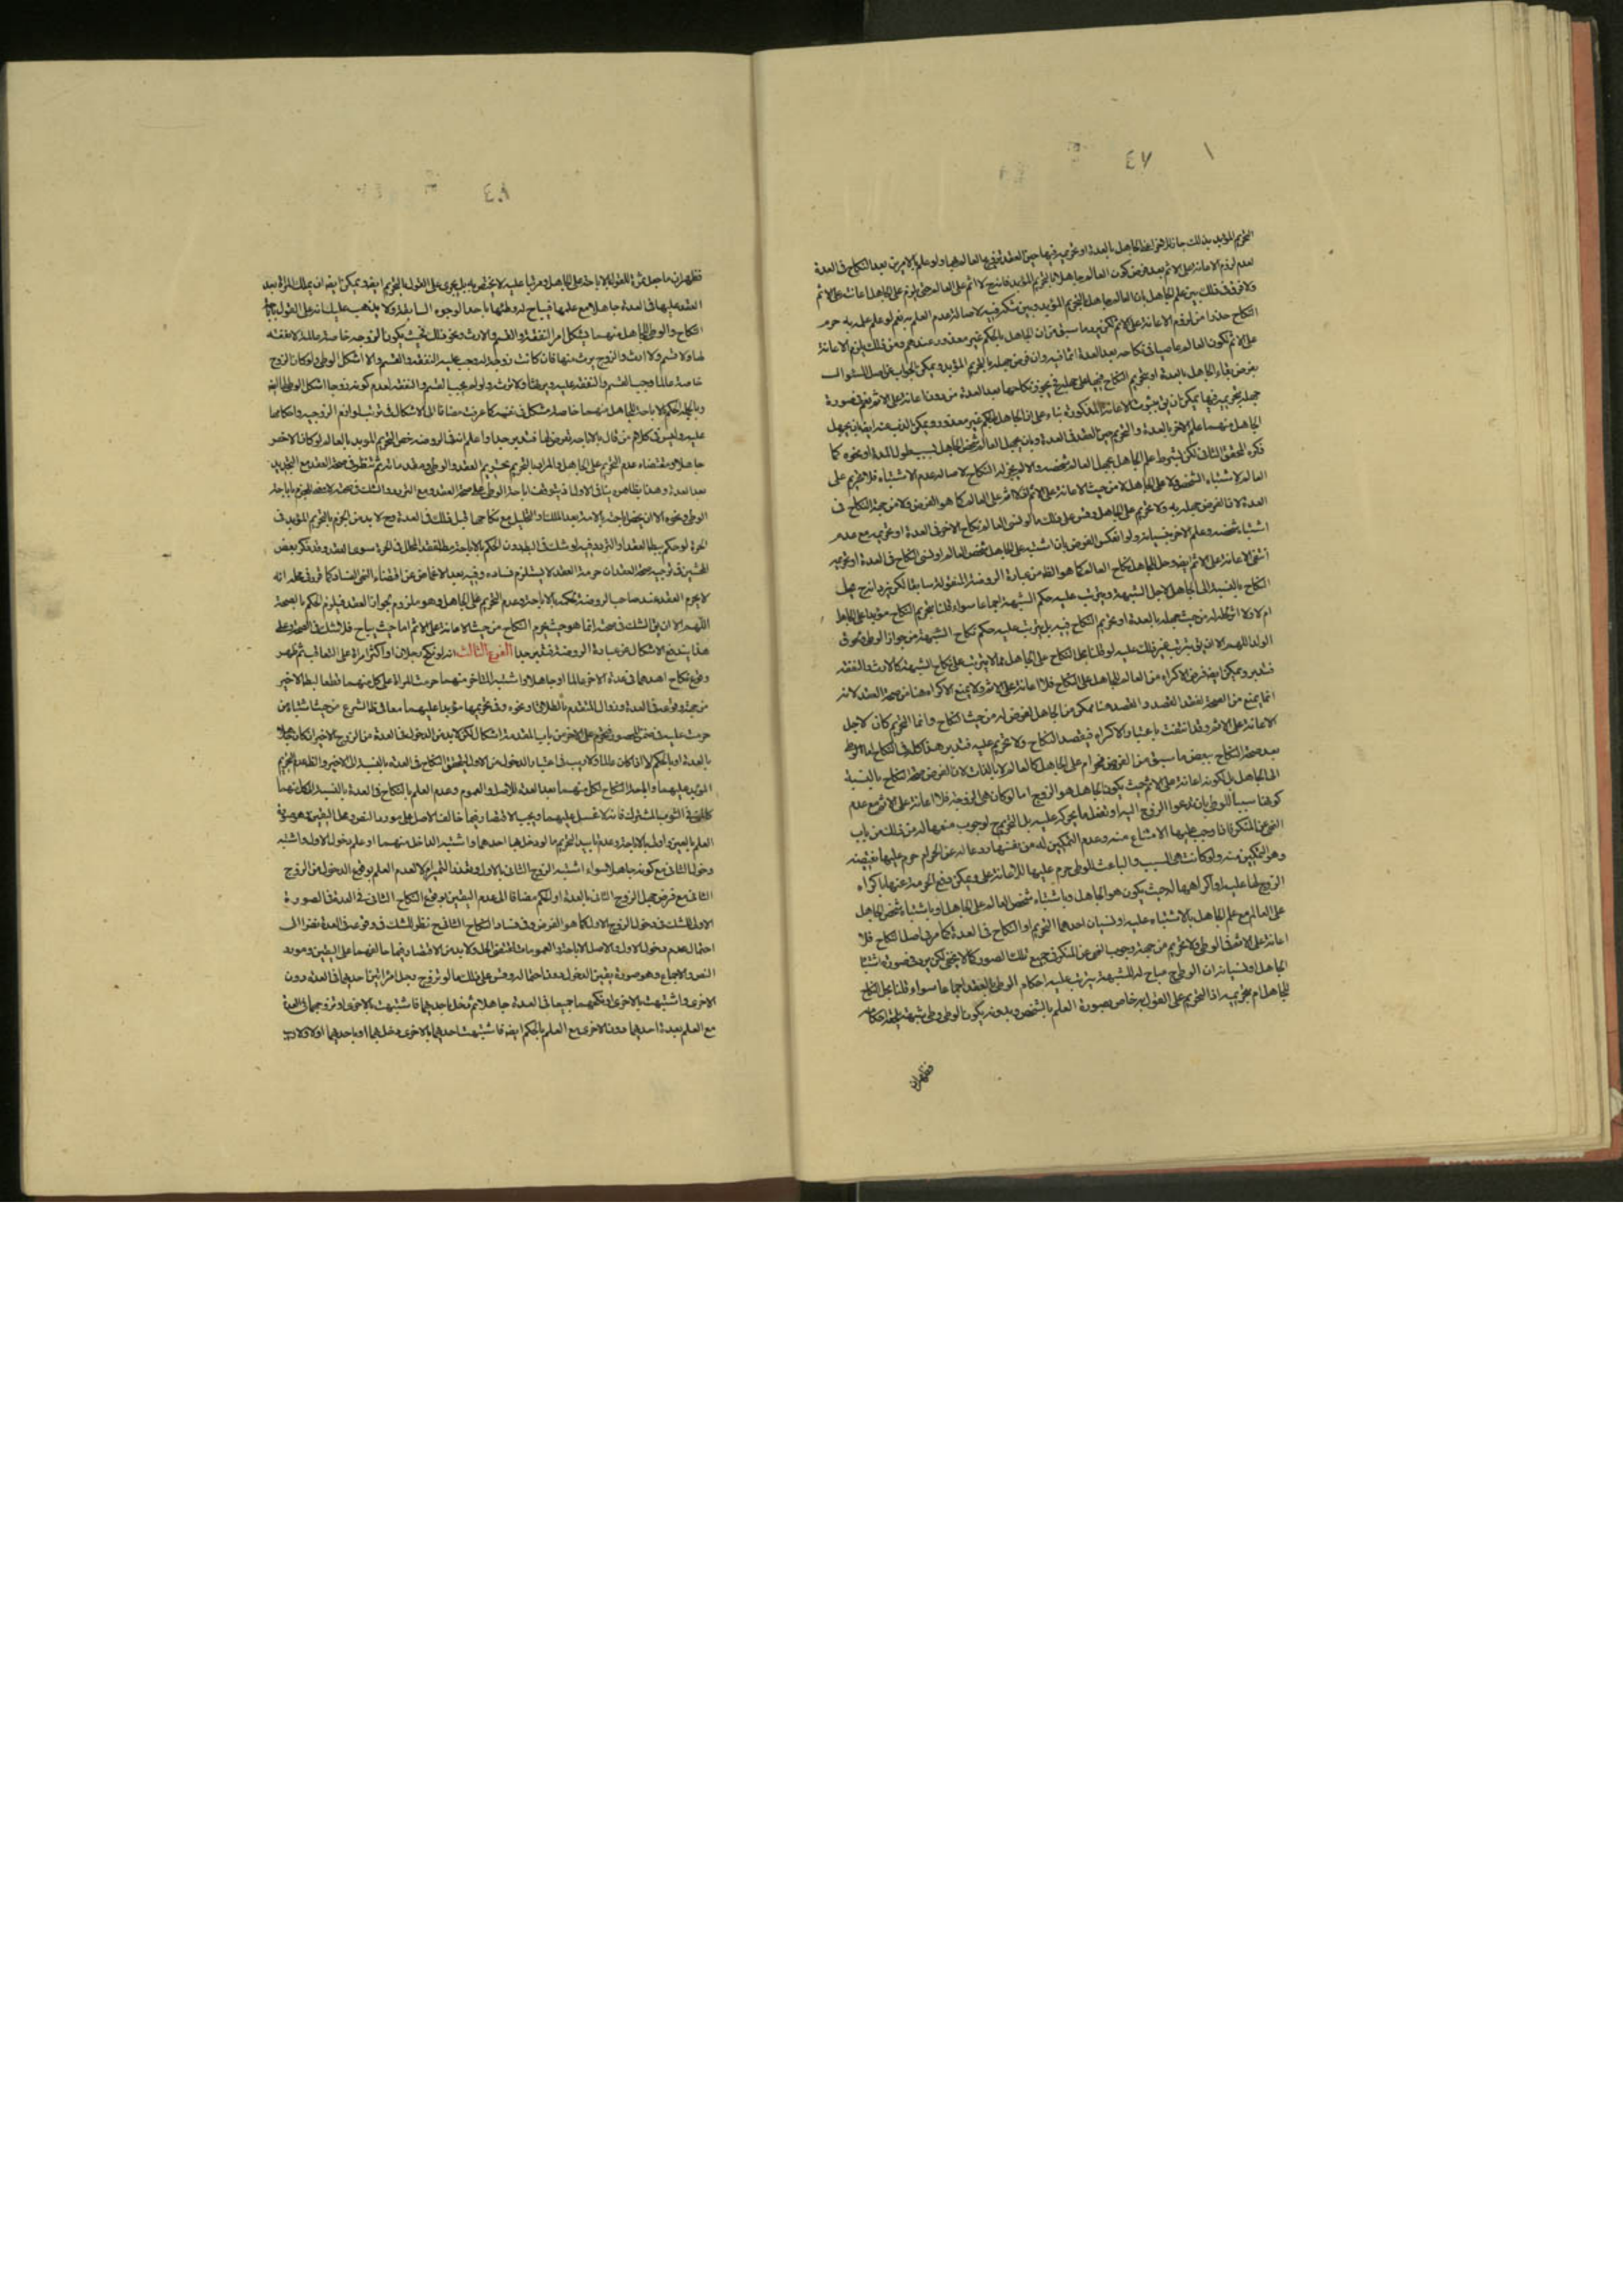 ٤٧
التحريم المؤبد بذلك جاز للاخر اعنى الجاهل بالعدة او تحريمه فيها حين العقد تزويج العالم بها ولو علم بالامرين بعد النكاح فى العدة
لعدم لزوم الاعانة على الاثم بعد فرض كون العالم جاهلا بالتحريم المؤبد فانه ح لا اثم على العالم حتى يلزم على الجاهل اعانته على الاثم
ولا فرق فى ذلك بين علم الجاهل بان العالم جاهل بالتحريم المؤبد وبين شكه فيه لاصالة عدم العلم به نعم لو علم علمه به حرم
النكاح حذرا من لزوم الاعانة على الاثم لكن يرد ما سبق من ان الجاهل بالحكم غير معذور عندهم ومن ذلك يلزم الاعانة
على الاثم لكون العالم عاصيا فى نكاحه بعد العدة اثما فيه وان فرض جهله بالتحريم المؤبد ويمكن الجواب عن اصل السؤال
بفرض بقاء الجاهل بالعدة او بتحريم النكاح فيها على جهله فح يجوز نكاحها بعد العدة من دون اعانة على الاثم نعم فى صورة
جهله بتحريمه فيها يمكن ان يق بثبوت الاعانة المذكورة بناء على ان الجاهل بالحكم غير معذور ويمكن الذب عنه ايضا بان يجهل
الجاهل منهما علم الاخر بالعدة والتحريم حين العقد فى العدة وبان يجهل العالم شخص الجاهل بسبب طول المدة او نحوه كما
ذكره المحقق الثانى لكن بشرط علم الجاهل بجهل العالم شخصه والا لم يجز له النكاح لاصالة عدم الاشتباه فلا تحريم على
العالم لاشتباه الشخص ولا على الجاهل لا من حيث الاعانة على الاثم اذ لا اثم على العالم كما هو الفرض ولا من جهة النكاح فى
العدة لان الفرض جهله به ولا تحريم على الجاهل وقس على ذلك ما لو نسى العالم نكاح الاخر فى العدة او تحريمه مع عدم
اشتباه شخصه وعلم الاخر بنسيانه ولو انعكس الفرض بان اشتبه على الجاهل شخص العالم او نسى النكاح فى العدة او تحريمه
انتفى الاعانة على الاثم ايضا وحل للجاهل نكاح العالم كما هو الظ من عبارة الروضة المنقولة سابقا لكن يرد انه ح يحل
النكاح بالنسبة الى الجاهل لاجل الشبهة ويترتب عليه حكم الشبهة اجماعا سواء قلنا بتحريم النكاح مؤبدا على الجاهل
ام لا ولا اثر لحله له من حيث جهله بالعدة او تحريم النكاح فيه بل يترتب عليه حكم نكاح الشبهة من جواز الوطى ولحوق
الولد اللهم الا ان يق بترتب غير ذلك عليه لو قلنا بحل النكاح على الجاهل مما لا يترتب على نكاح الشبهة كالارث والنفقة
فتدبر ويمكن ايضا فرض الاكراه من العالم للجاهل على النكاح فلا اعانة على الاثم ولا يمنع الاكراه هنا من صحة العقد لانه
انما يمنع من الصحة لفقد القصد والقصد هنا ممكن من الجاهل لفرض له من حيث النكاح وانما التحريم كان لاجل
الاعانة على الاثم وقد انتفت باعتبار الاكراه فيقصد النكاح ولا تحريم عليه فتدبر هذا كله فى النكاح اما الوطى
بعد صحة النكاح ببعض ما سبق من الفرض فحرام على الجاهل كالعالم لا بالذات لان الفرض صحة النكاح بالنسبة
الى الجاهل بل لكونه اعانة على الاثم حيث يكون الجاهل هو الزوج اما لو كان هى الزوجة فلا اعانة على الاثم مع عدم
كونها سببا للوطى بان تدعوا الزوج اليه او تفعل ما يحركه عليه بل التحريم ح لوجوب منعها له من ذلك من باب
النهى عن المنكر فانه وجب عليها الامتناع منه وعدم التمكين له من نفسها ردعا له عن الحرام حرم عليها نقيضه
وهو التمكين منه ولو كانت هى السبب والباعث للوطى حرم عليها للاعانة على ويمكن دفع الحرمة عنها باكراه
الزوج لها عليه او اكراهها له حيث يكون هو الجاهل وباشتباه شخص العالم على الجاهل او باشتباه شخص الجاهل
على العالم مع علم الجاهل بالاشتباه عليه او نسيان احدهما التحريم او النكاح فى العدة كما مر فى اصل النكاح فلا
اعانة على الاثم فى الوطى ولا تحريم من جهة وجوب النهى عن المنكر فى جميع تلك الصور كما لا يخفى لكن يرد فى صورة اشتباه
الجاهل او نسيانه ان الوطى ح مباح له للشبهة يترتب عليه احكام الوطى بالعقد اجماعا سواء قلنا بحل النكاح
للجاهل ام بتحريمه اذ التحريم على القول به خاص بصورة العلم بالشخص وبدونه يكون الوطى وطى شبهة
فظهر ان
٤٨
فظهر ان ما جعل ثمرة للقول بالاباحة على الجاهل ومرتبا عليه لا يختص به بل يجرى على القول بالتحريم ايضا ويمكن ايضا ان يملك المرأة بعد
العقد عليها فى العدة جاهلا مع علمها فيباح له وطئها باحد الوجوه السابقة ولا يذهب عليك انه على القول باباحة
النكاح والوطى للجاهل منهما يشكل امر النفقة والقسم والارث ونحو ذلك بحيث يكون الزوجة خاصة عالمة لا نفقة
لها ولا قسم ولا ارث والزوج يرث منها فان كانت زوجة له وجب عليه النفقة والقسم والا اشكل الوطى ولو كان الزوج
خاصة عالما وجب القسم والنفقة عليه ويرثها ولا ترث ولو لم يجب القسم والنفقة لعدم كونه زوجا اشكل الوطى لها ايضا
وبالجملة الحكم بالاباحة للجاهل منهما خاصة مشكل فى نفسه كما عرفت مضافا الى الاشكال فى ترتب لوازم الزوجية واحكامها
عليه وليس فى كلام من قال بالاباحة تعرض لها فتدبر جيدا واعلم انه فى الروضة خص التحريم المؤبد بالعالم لو كان الاخر
جاهلا ومقتضاه عدم التحريم على الجاهل والمراد بالتحريم تحريم العقد والوطى وبعد ما ذكره ثم تنظر فى صحة العقد مع التجديد
بعد العدة وهذا بظاهره ينافى الاول اذ ثبوت اباحة الوطى صحة العقد ومع التردد والشك فى صحته لا معنى للجزم باباحة
الوطى ونحوه الا ان يخص اباحته بالامة بعد الملك او التحليل مع نكاحها قبل ذلك فى العدة وح لا بد من الجزم بالتحريم المؤبد فى
الحرة لو حكم ببطلان العقد او التردد فيه لو شك فى البطلان دون الحكم بالاباحة مطلقا لفقد المحلل فى الحرة سوى العقد وقد ذكر بعض
المحشين فى توجيه صحة العقد ان حرمة العقد لا يستلزم فساده وفيه بعد الاغماض عن اقتضاء النهى الفساد كما قرر فى محله انه
لا يحرم العقد عند صاحب الروضة لحكمه بالاباحة وعدم التحريم على الجاهل وهو ملزوم لجواز العقد فيلزم الحكم بالصحة
اللهم الا ان يق الشك فى صحته انما هو حيث يحرم النكاح من حيث الاعانة على الاثم اما حيث يباح فلا شك فى الصحة وعلى
هذا يندفع الاشكال عن عبارة الروضة فتدبر جيدا الفرع الثالث انه لو نكح رجلان او اكثر امرأة على التعاقب ثم ظهر
وقوع نكاح احدهما فى عدة الاخر عالما او جاهلا واشتبه المتأخر منهما حرمت المرأة على كل منهما قطعا لبطلان الاخير
من جهة وقوعه فى العدة وزوال المتقدم بالطلاق او نحوه وفى تحريمها مؤبدا عليهما معا فى ظ الشرع من حيث اشتباه من
حرمت عليه فى ضمن المحصور فتحرم على الاخر من باب المقدمة اشكال لكن لا بد من الدخول فى العدة من الزوج الاخير ان كان جاهلا
بالعدة او بالحكم لا ان كان عالما ولا ريب فى اعتبار الدخول من الاول ليتحقق النكاح فى العدة بالنسبة الى الاخير والظ عدم التحريم
المؤبد عليهما واباحة النكاح لكل منهما بعد العدة للاصل والعموم وعدم العلم بالنكاح فى العدة بالنسبة الى كل منهما
كالمنى فى الثوب المشترك فانه لا غسل عليهما ويجب الاقتصار فيما خالف الاصل على مورد النص ومحل اليقين وهو صورة
العلم بالعين واولى بالاباحة وعدم تأبيد التحريم ما لو دخل بها احدهما واشتبه الداخل منهما او علم دخول الاول واشتبه
دخول الثانى مع كونه جاهلا سواء اشتبه الزوج الثانى بالاول وفقد التميز ام لا لعدم العلم بوقوع الدخول من الزوج
الثانى مع فرض جهل الزوج الثانى بالعدة او الحكم مضافا الى عدم اليقين بوقوع النكاح الثانى فى العدة فى الصورة
الاولى للشك فى دخول الزوج الاول كما هو الفرض وفى فساد النكاح الثانى ح نظر للشك فى وقوعه فى العدة نظرا الى
احتمال عدم دخول الاول والاصل الاباحة والعمومات تقتضى الحل ولا بد من الاقتصار فيما خالفهما على اليقين ومورد
النص والاجماع وهو صورة يقين الدخول دون احتماله وقس على ذلك ما لو تزوج رجل امرأتين احديهما فى العدة دون
الاخرى واشتبهت بالاخرى او نكحهما جميعا فى العدة جاهلا ثم دخل باحديهما فاشتبهت بالاخرى او تزوجهما فى العدة
مع العلم بعدة احديهما دون الاخرى مع العلم بالحكم ايضا فاشتبهت احديهما بالاخرى دخل بهما او باحديهما او لا ولا ريب